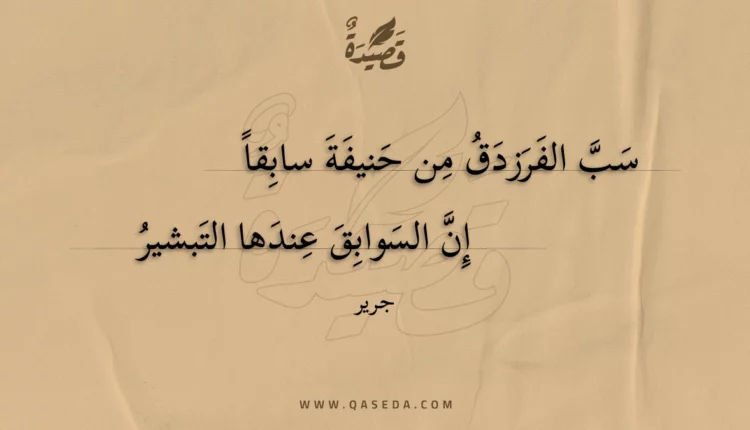 قَصِيْدَةٌ
سَبَّ الفَرَزدَقُ مِن حَنيفَةَ سابِقاً
إِنَّ السَوابِقَ عِندَها التَبشيرُ
جرير
WWW.QASEDA.COM